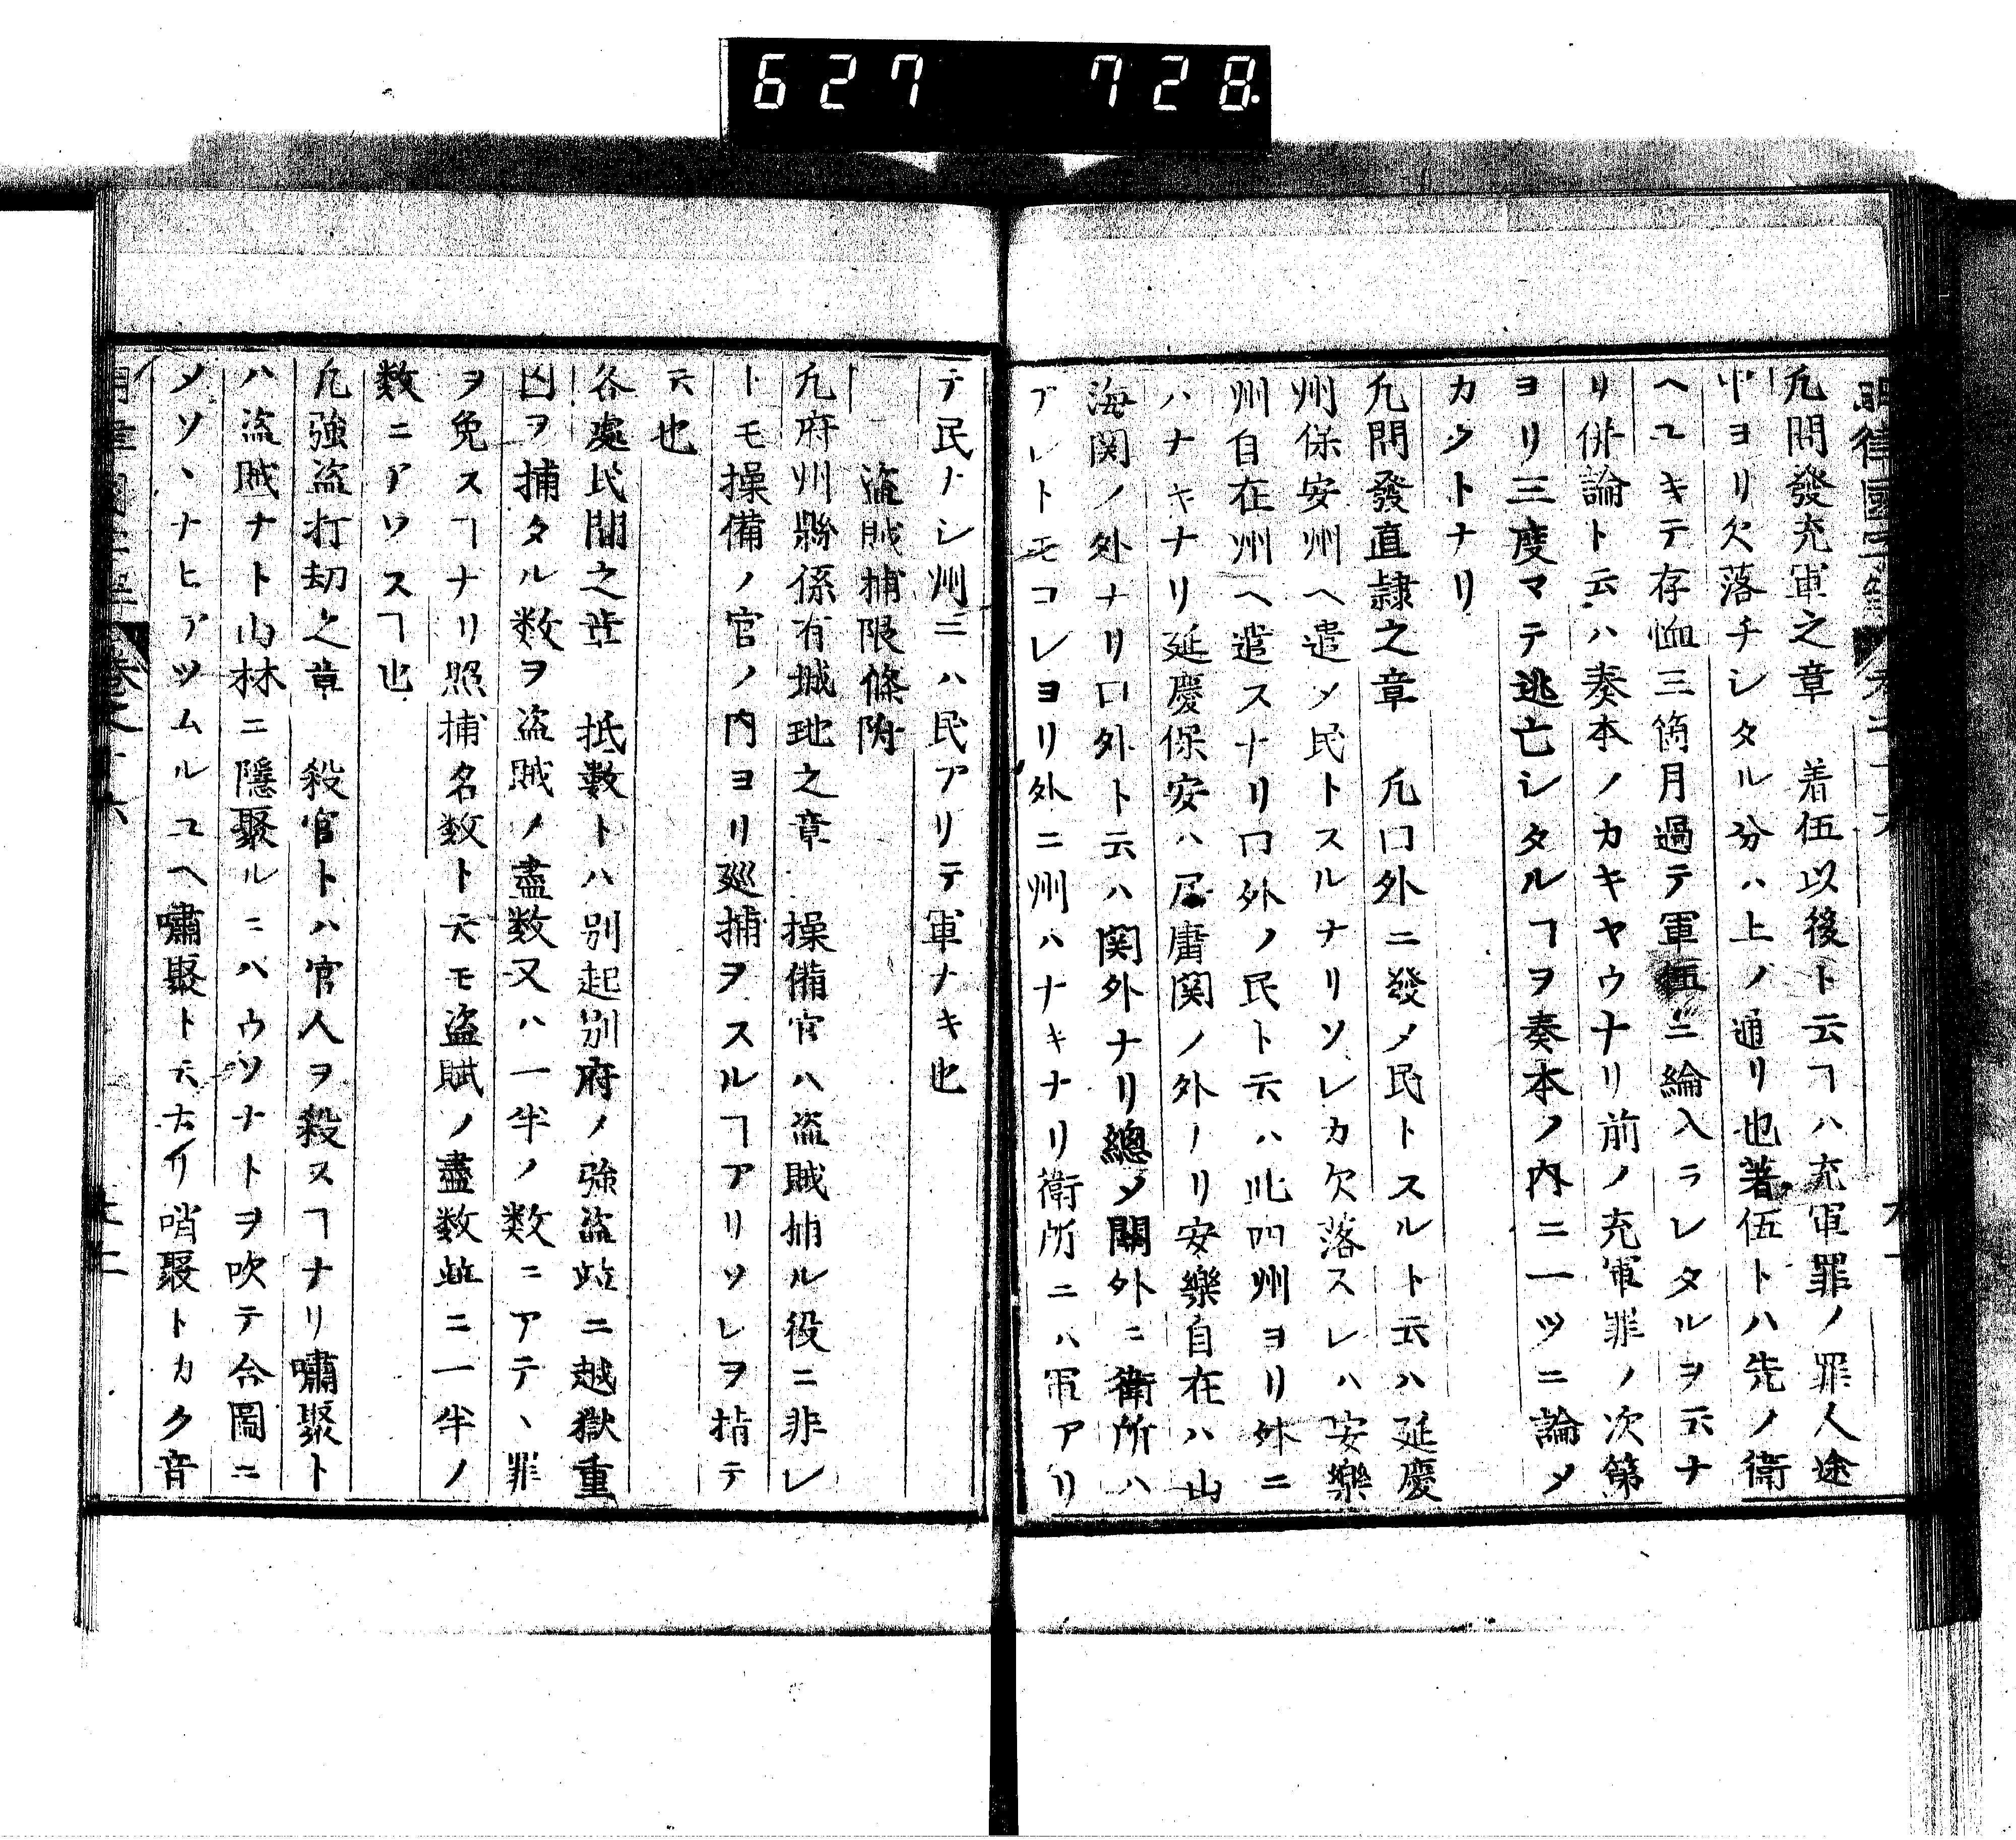 627 728
凢問發充軍之章　着伍以後ト云ヿハ充軍罪ノ罪人途
中ヨリ欠落チシタル分ハ上ノ通リ也著伍トハ先ノ衛
ヘユキテ存恤三箇月過テ軍伍ニ綸入ラレタルヲ云ナ
リ併論ト云ハ奏本ノカキヤウナリ前ノ充軍罪ノ次第
ヨリ三度マテ逃亡シタルヿヲ奏本ノ内ニ一ツニ論メ
カクトナリ
凢問發直隷之章　凢口外ニ發メ民トスルト云ハ延慶
州保安州ヘ遣メ民トスルナリソレカ欠落スレハ安樂
州自在州ヘ遣スナリ口外ノ民ト云ハ此四州ヨリ外ニ
ハナキナリ延慶保安ハ居庸関ノ外ノリ安樂自在ハ山
海関ノ外ナリ口外ト云ハ関外ナリ總メ關外ニ衛所ハ
アレトモコレヨリ外ニ州ハナキナリ衛所ニハ軍アリ
テ民ナシ州ニハ民アリテ軍ナキ也
盗賊捕限條附
凢府州縣係有城地之章　操備官ハ盗賊捕ル役ニ非レ
トモ操備ノ官ノ内ヨリ廵捕ヲスルヿアリソレヲ指テ
云也
各處民間之章　抵數トハ別起別府ノ強盗並ニ越獄重
囚ヲ捕タル数ヲ盗賊ノ盡数又ハ一半ノ数ニアテヽ罪
ヲ免スヿナリ照捕名数ト云モ盗賊ノ盡数並ニ一半ノ
数ニアワスヿ也
凢強盗打刧之章　殺官トハ官人ヲ殺スヿナリ嘯聚ト
ハ盗賊ナト山林ニ隱聚ルニハウソナトヲ吹テ合圖ニ
メソヽナヒアツムルユヘ嘯聚ト云ナリ哨聚トカク音